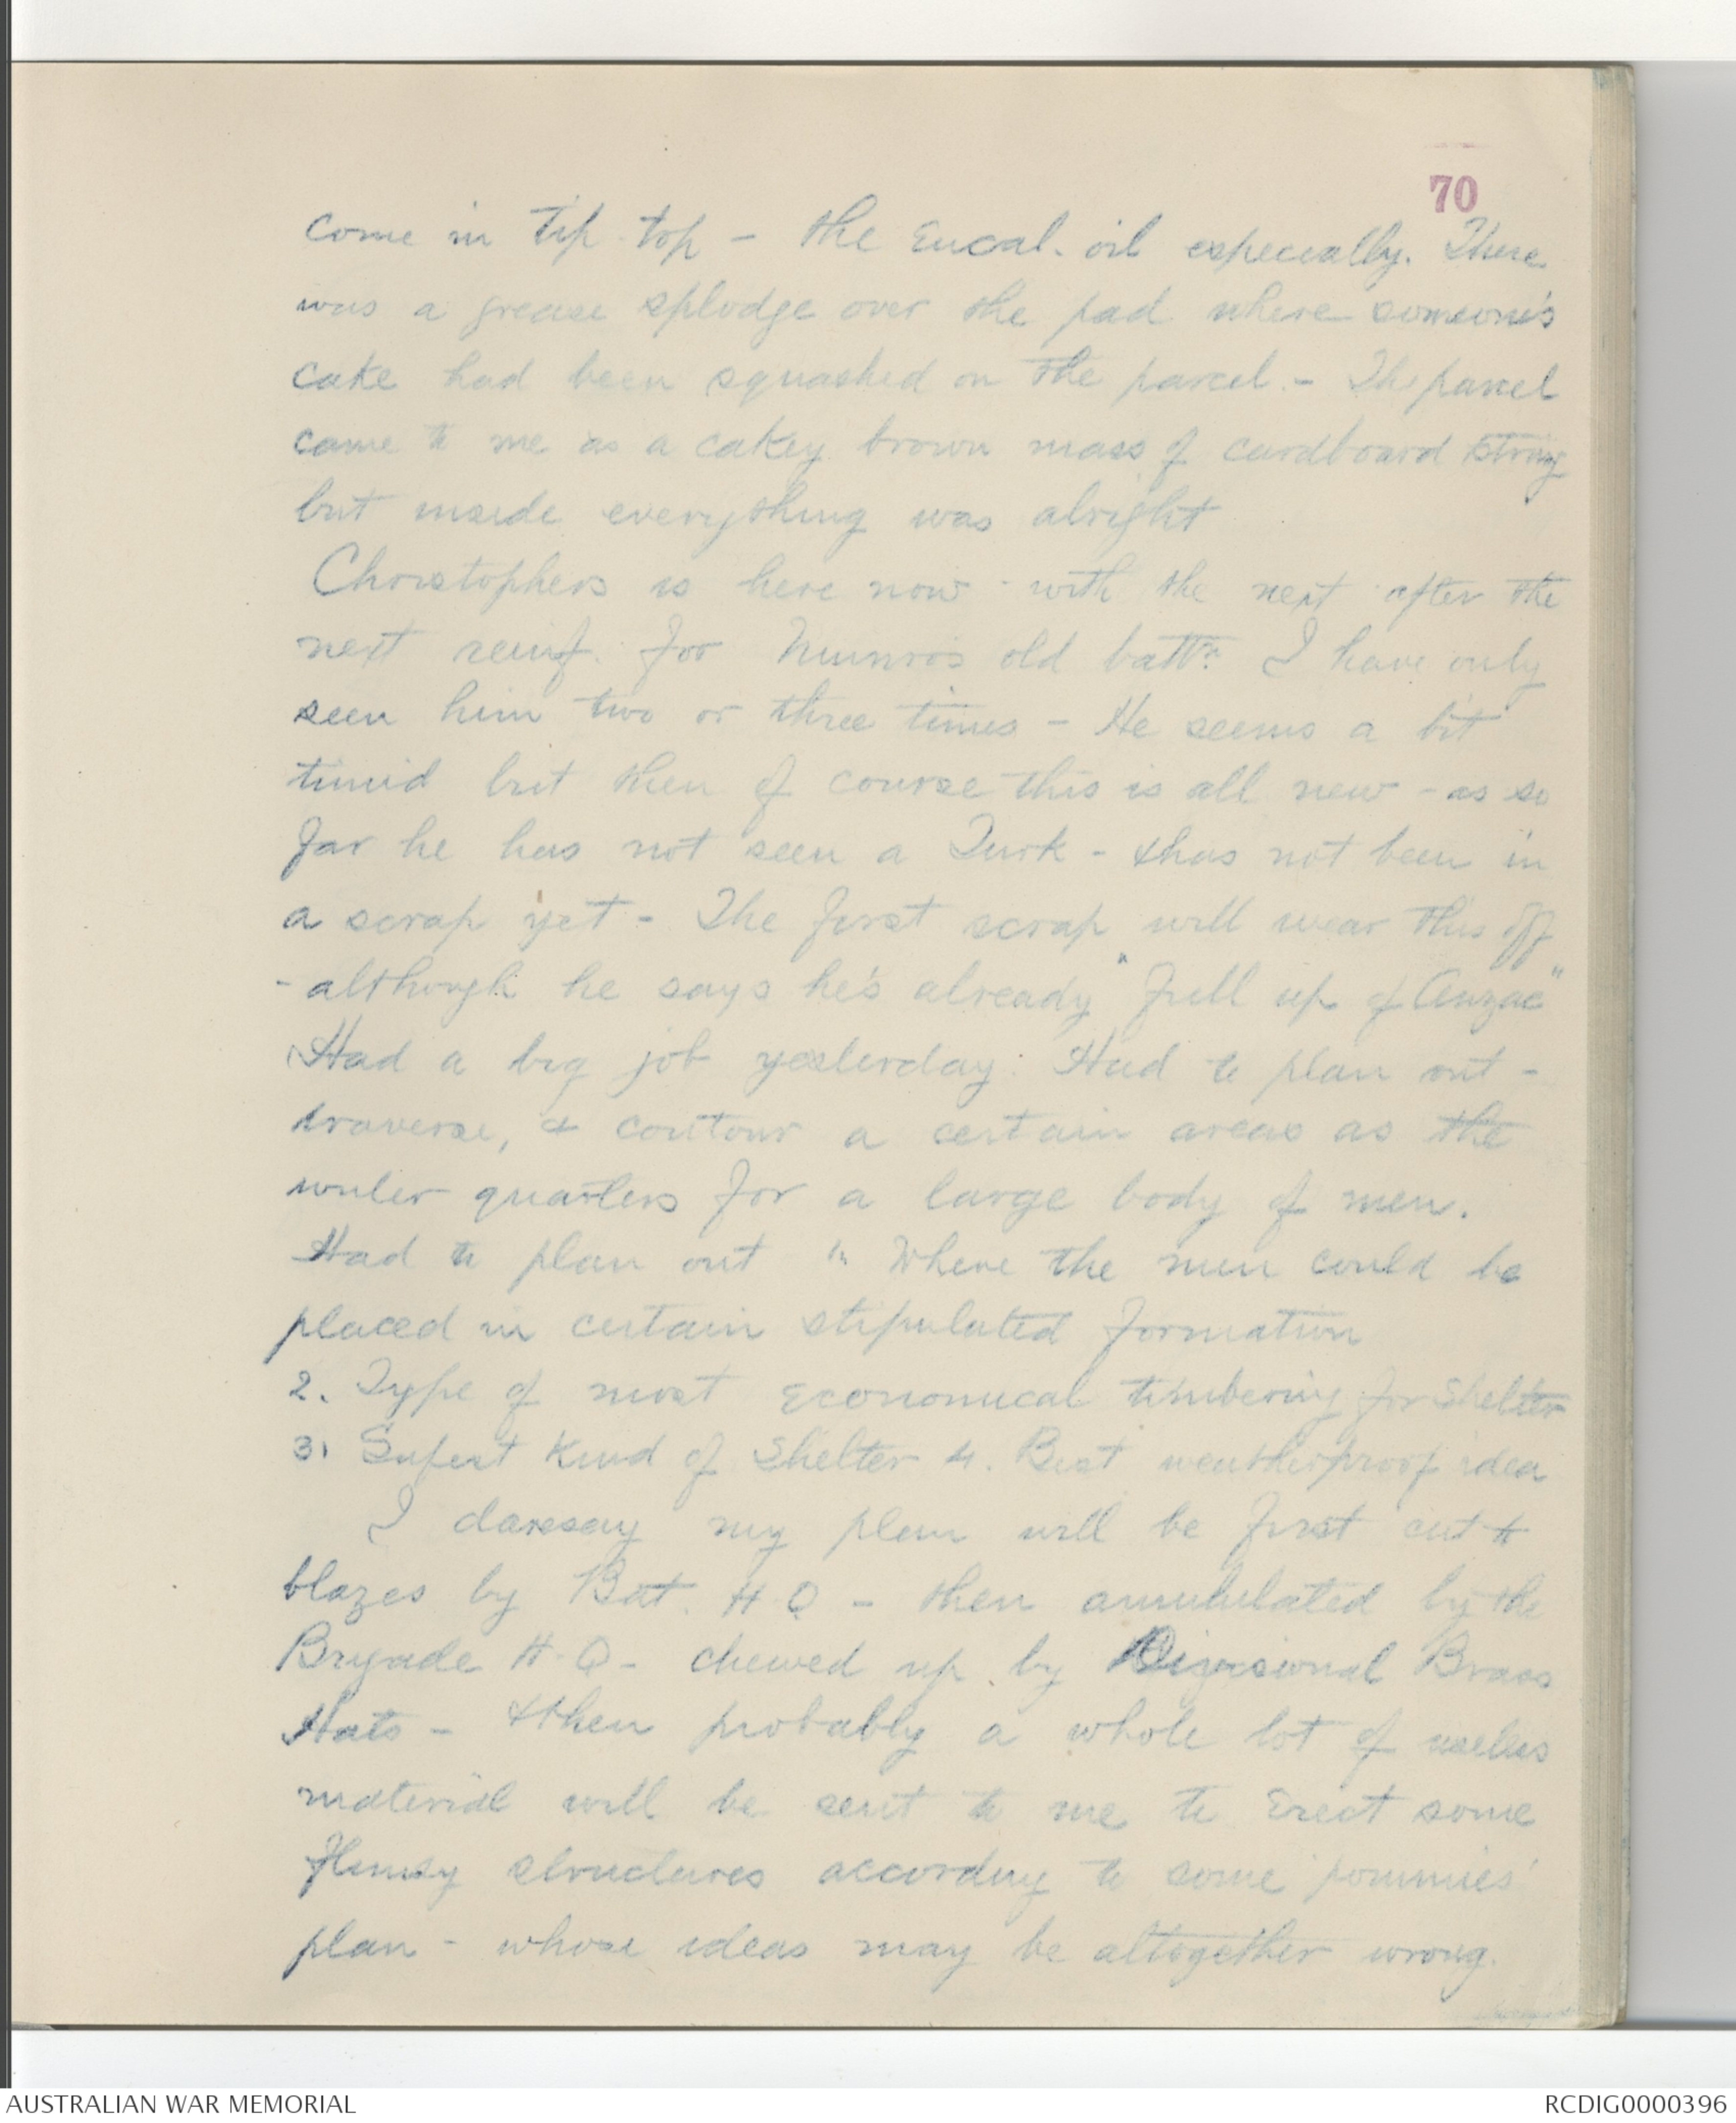 70
come in tip top - the Eucal. oil especially. There
was a grease splodge over the pad where someone's
cake had been squashed on the parcel. - The parcel
came to me as a cakey brown mass of cardboard string
but inside everything was alright
Christophers is here now - with the next after the
next reinf. for Munro's old battn. I have only
seen him two or three times - He seems a bit
timid but then of course this is all new - as so
far he has not seen a Turk - & has not been in
a scrap yet - The first scrap will wear this off
- although he says he's already "full up of Anzac"
Had a big job yesterday: Had to plan out -
traverse, & contour a certain areas as the
winter quarters for a large body of men.
Had to plan out Where the men could be
placed in certain stipulated formation
2. Type of most Economical timbering for Shelter
3. Safest Kind of Shelter 4. Best weatherproof idea
I daresay my plan will be first cut to
blazes by Bat. H Q - then annihilated by the
Brigade H. Q - chewed up by Divisional Brass
Hats - & then probably a whole lot of useless
material will be sent to me to Erect some
flimsy structures according to some pommies'
plan - whose ideas may be altogether wrong.
AUSTRALIAN WAR MEMORIAL
RCDIG0000396